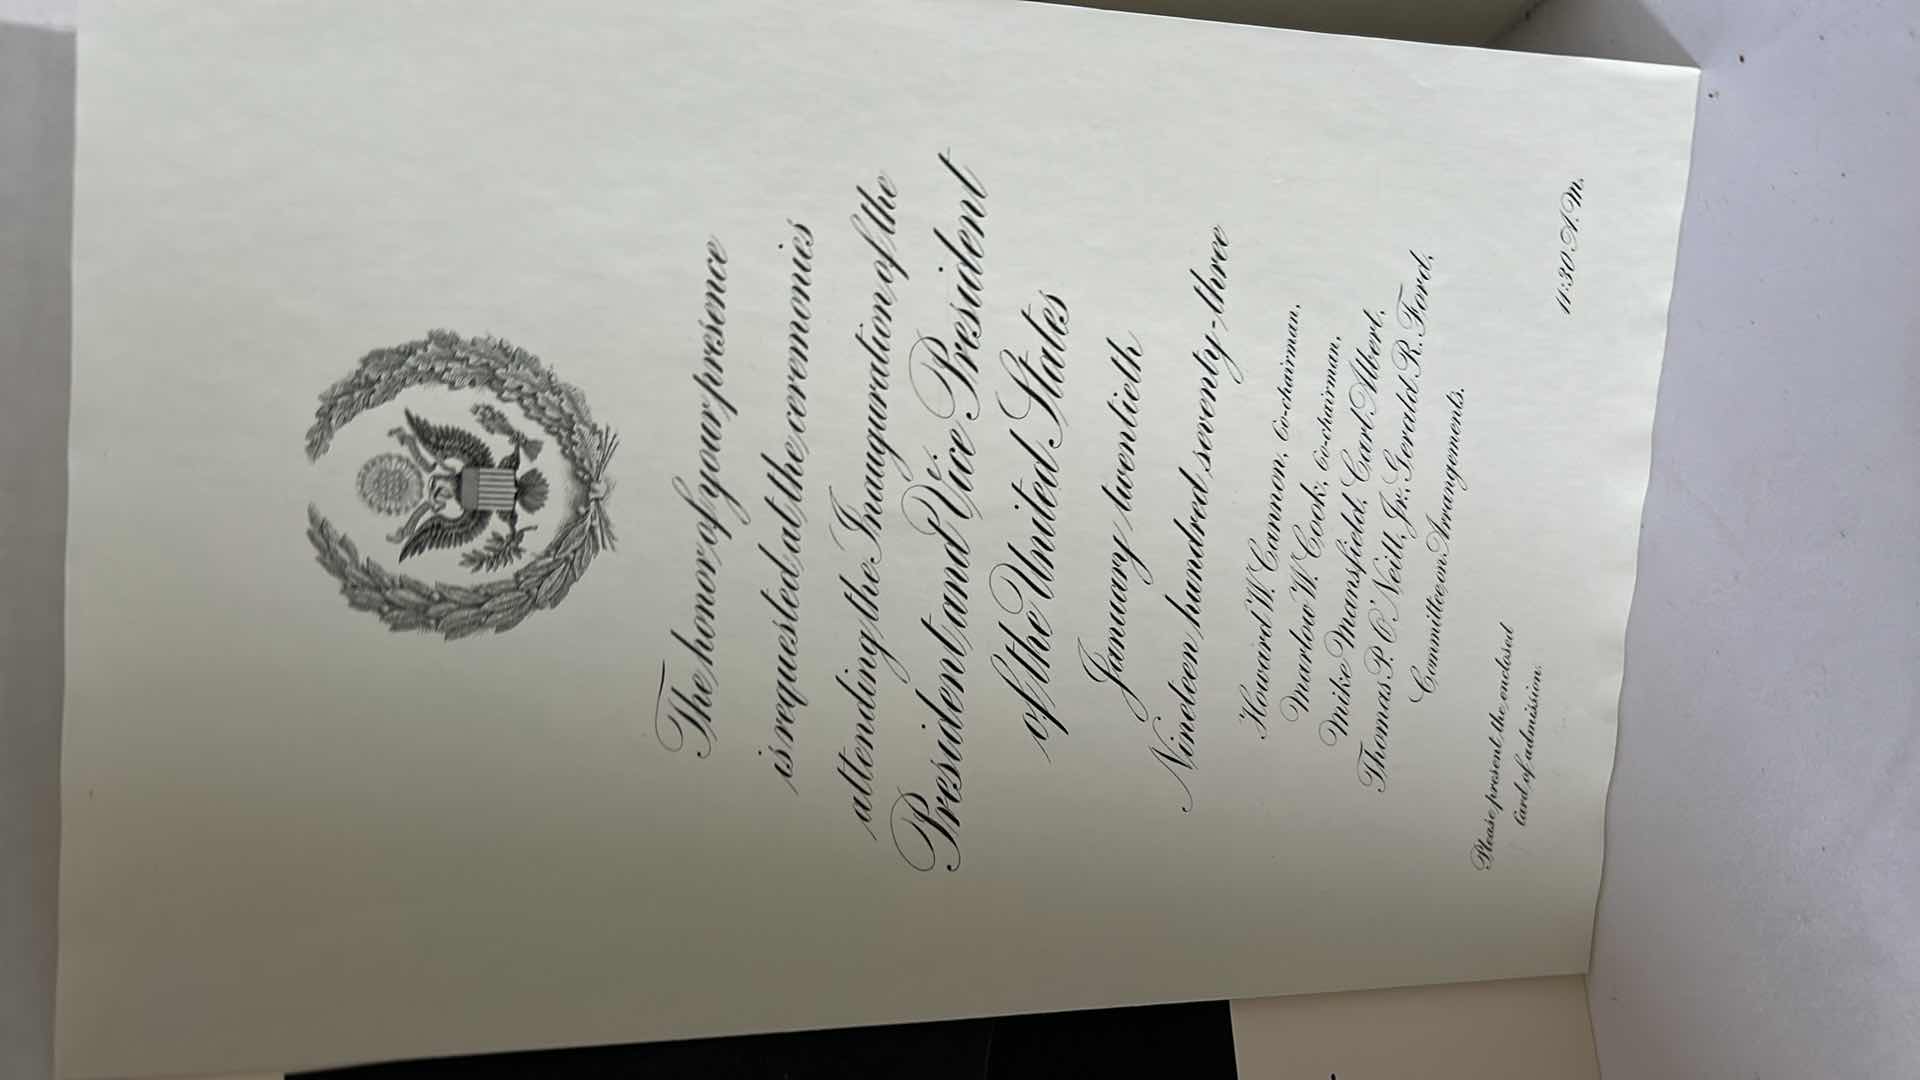 The honor of your presence
is requested at the ceremonies
attending the Inauguration of the
President and Vice President
of the United States
January twentieth
Nineteen hundred seventy-three
Howard W. Cannon, Co-chairman,
Marlow W. Cook, Co-chairman,
Mike Mansfield, Carl Albert,
Thomas P. O'Neill, Jr., Gerald R. Ford,
Committee on Arrangements.
Please present the enclosed
Card of admission.
11:30 A.M.